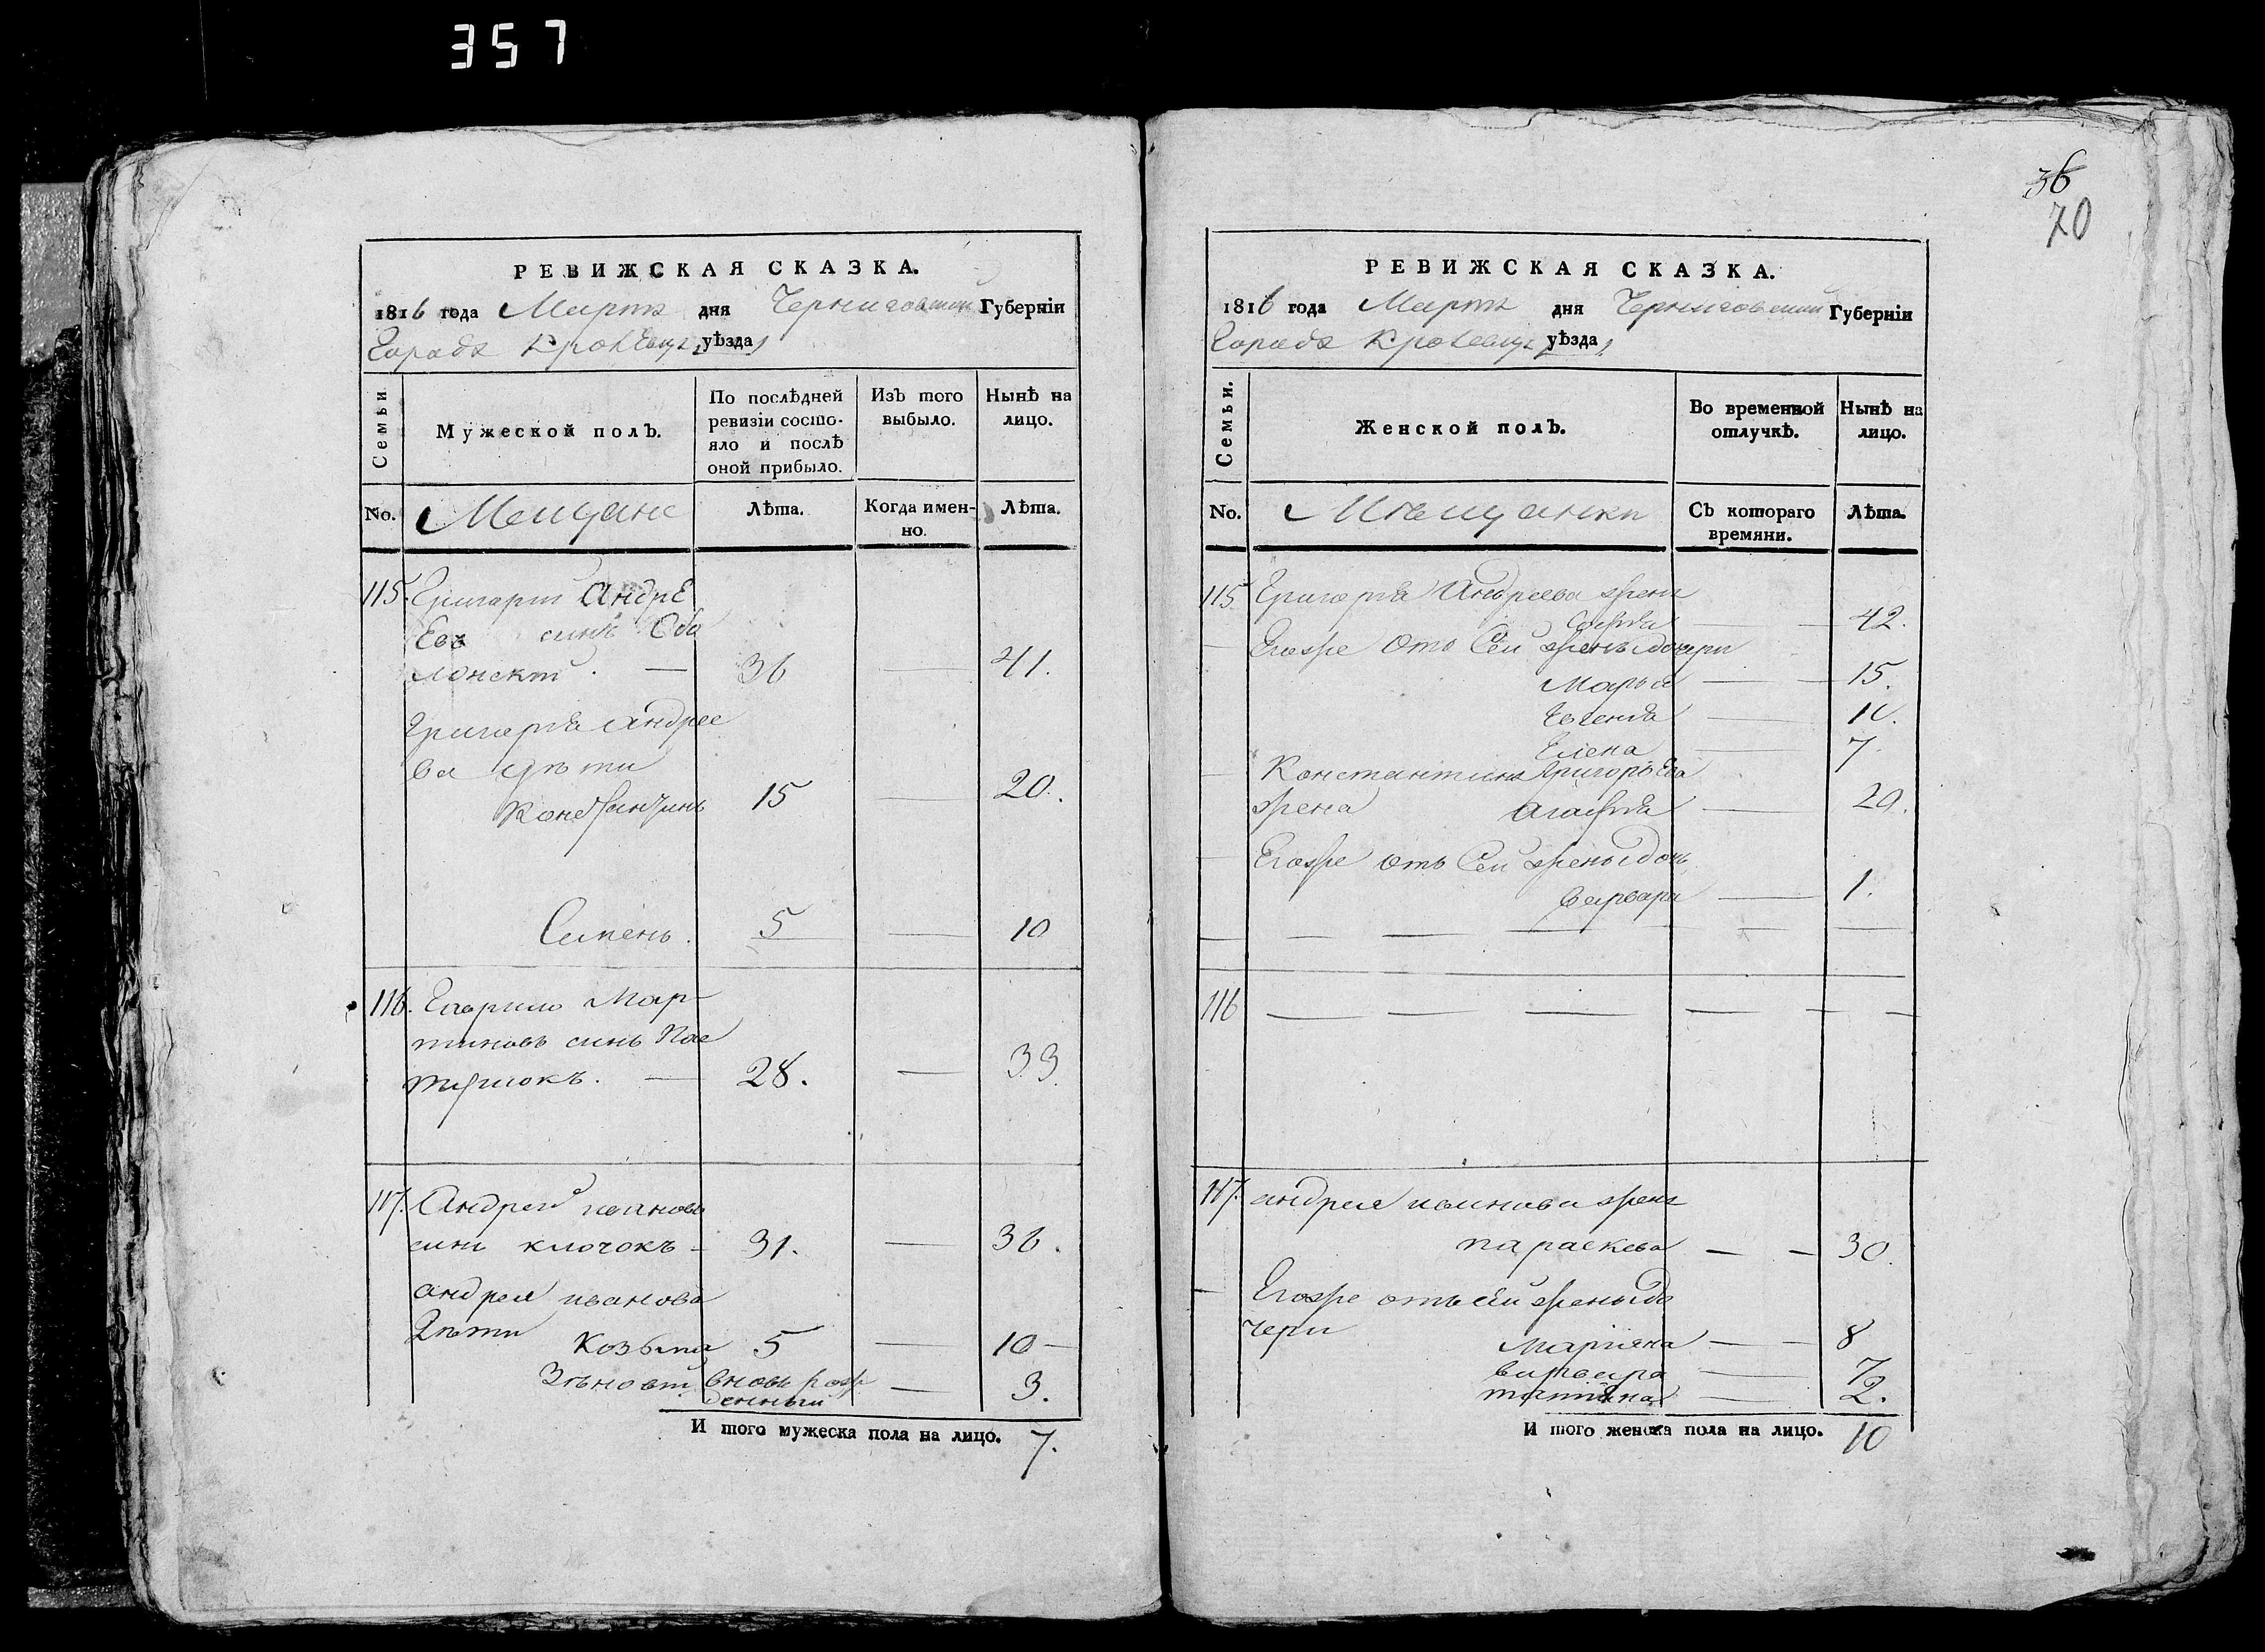 357
РЕВИЖСКАЯ СКАЗКА.
1816 года Мартъ дня Черниговской Губерніи
Города Кролевца уѣзда
Семьи.
Мужеской полъ.
По послѣдней
ревизіи состо-
яло и послѣ
оной прибыло.
Изъ того
выбыло.
Нынѣ на
лицо.
No. Мещане
Лѣта.
Когда имен-
но.
Лѣта.
115. Григорій Андре
евъ синъ
36 41.
Григорія Андрее
ва дѣти
Константинъ 15 20.
Сименъ. 5 10
116. Гаврило Мар-
тиновъ синъ
28. 33.
117. Андрей ивановъ
синъ клочокъ - 31. 36.
андрея иванова
дѣти
Козьма 5 10 -
Зѣновій вновь рож
денный 3.
И того мужеска пола на лицо. 7.
36
70
РЕВИЖСКАЯ СКАЗКА.
1816 года Мартъ дня Черниговской Губерніи
Города Кролевца уѣзда
Семьи.
Женской полъ.
Во временной
отлучкѣ.
Нынѣ на
лицо.
No. Мѣщанки
Съ котораго
времяни.
Лѣта.
115. Григорія Андреева жена
42.
Егоже отъ сей жены дочери
Марья 15.
Евгенія
Елена 7.
Константина Григорьева
жена Агафія 20.
Егоже отъ Сей жены дочь
Варвара 1.
116
117. андрея иванова жена
параскева 30.
Егоже отъ сей жены до
чери
Маріяна 8
варвара 7
татіяна 2.
И того женска пола на лицо. 10